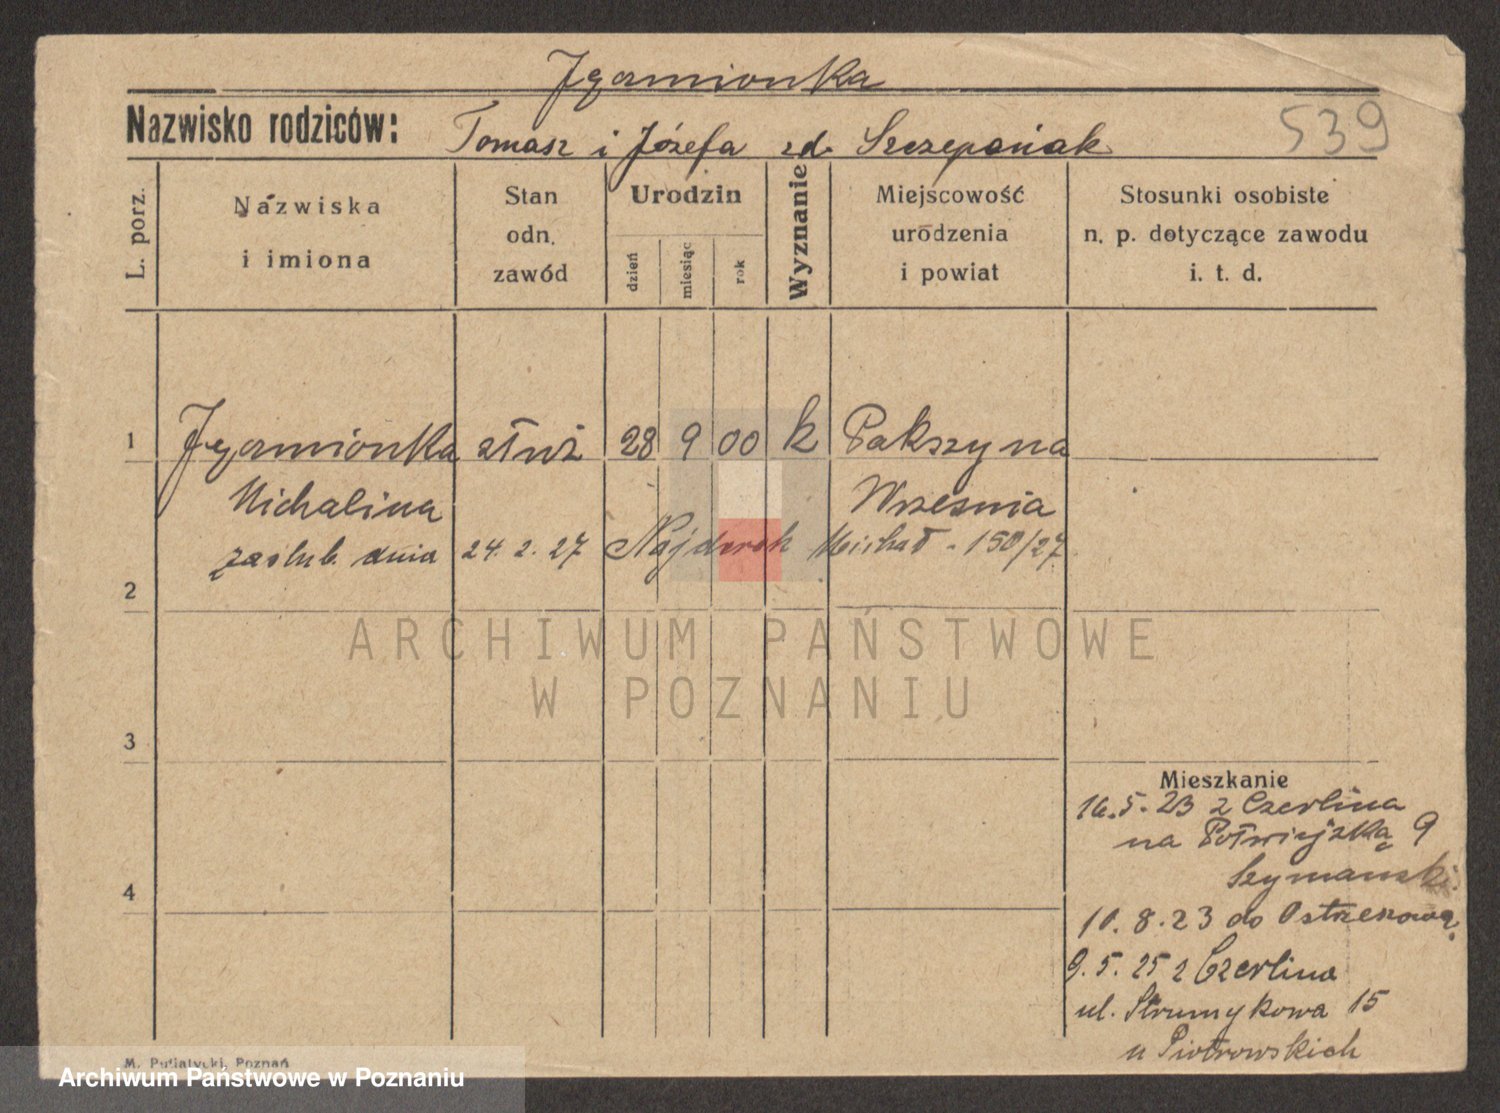 Jgamionka
Nazwisko rodziców: Tomasz i Józefa zd. Szczepaniak
539
L. porz.
Nazwiska
i imiona
Stan
odn.
zawód
Urodzin
dzień
miesiąc
rok
Wyznanie
Miejscowość
urodzenia
i powiat
Stosunki osobiste
n. p. dotyczące zawodu
i. t. d.
1 Jgamionka służ 28 9 00 k Pakszyna
Michalina Września
zaślub. dnia 24. 2. 27 Michał - 150/27
2
3
4
ARCHIWUM PAŃSTWOWE
W POZNANIU
Mieszkanie
16.5.23 z Czerlina
na Półwiejską 9
Szymański
10.8.23 do
9.5.25 z Czerlina
ul. Strumykowa 15
u Piotrowskich
M. Putiatycki, Poznań
Archiwum Państwowe w Poznaniu